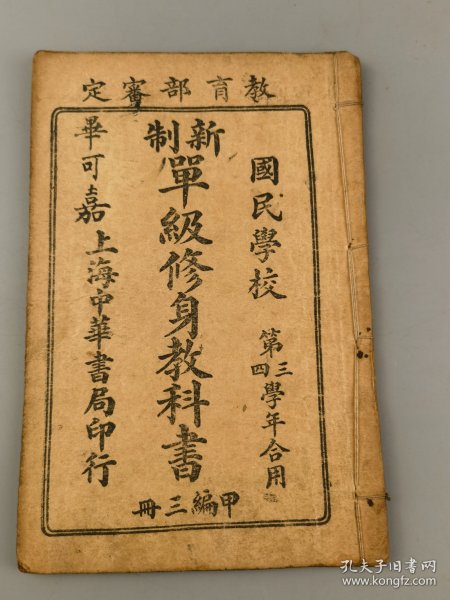 教育部審定
國民學校
第三四學年合用
新制
單級修身教科書
甲編三冊
畢可嘉
上海中華書局印行
孔夫子旧书网
www.kongfz.com